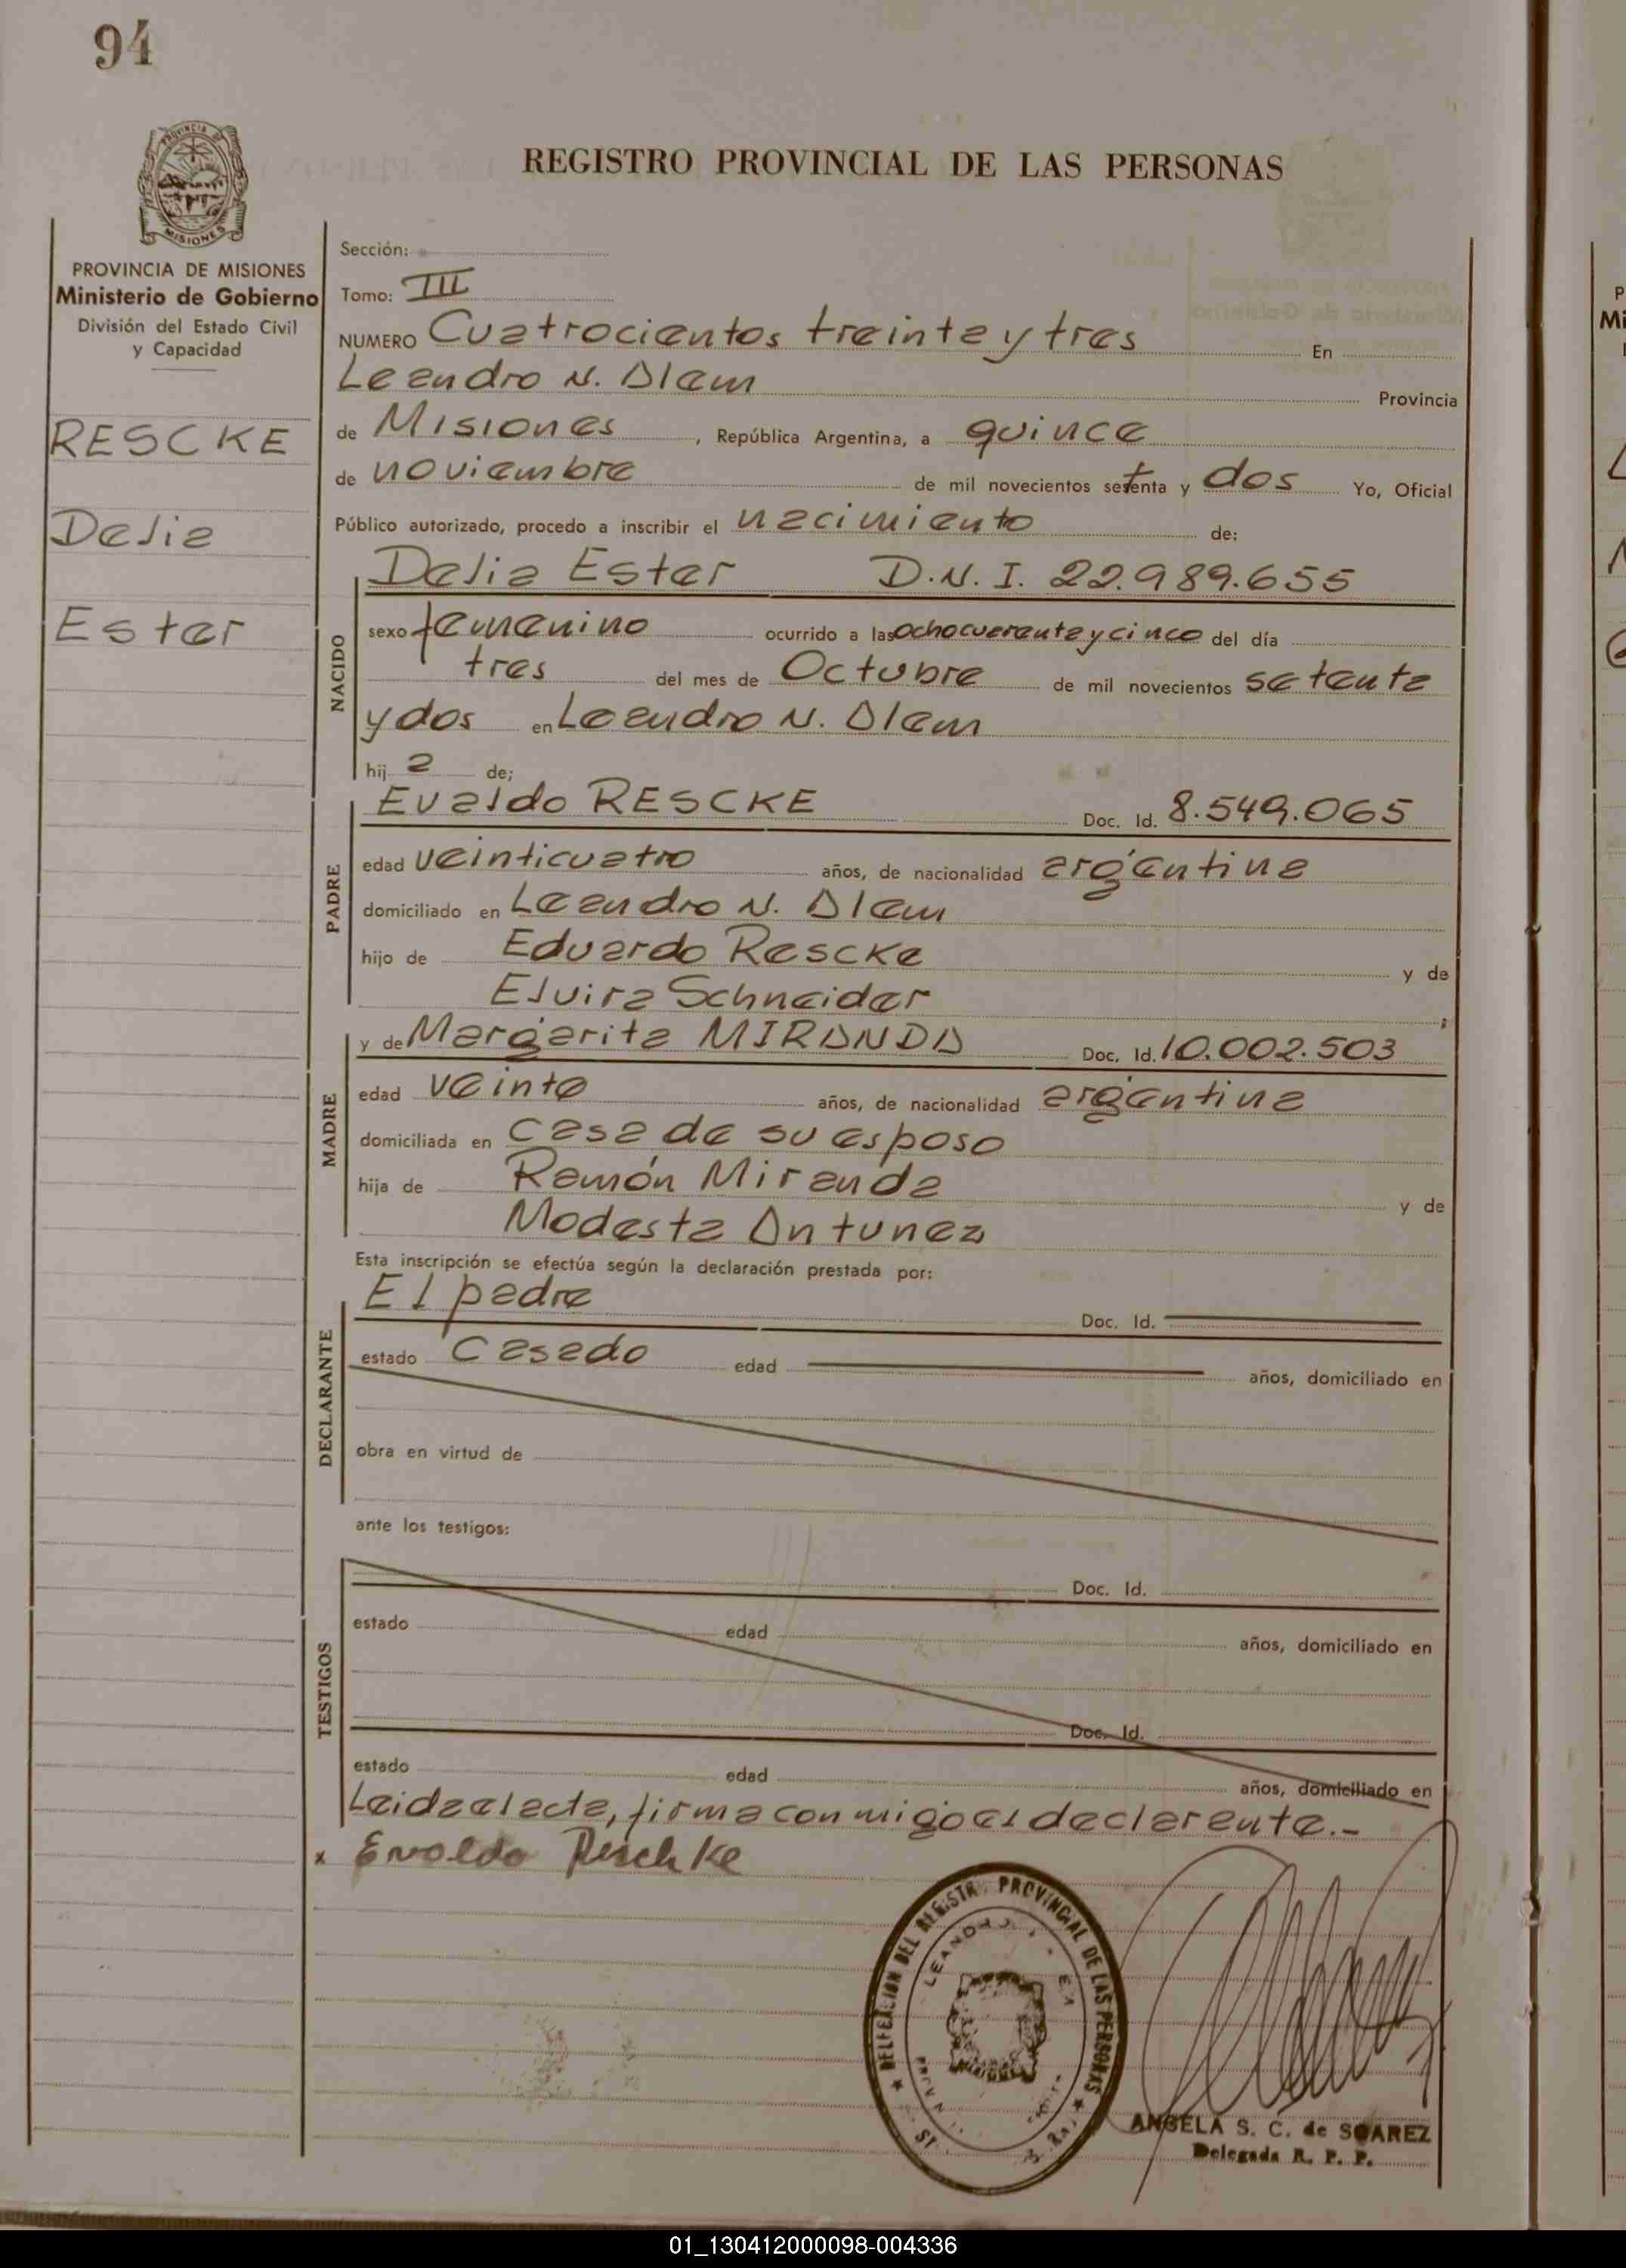 94
PROVINCIA DE
MISIONES
REGISTRO PROVINCIAL DE LAS PERSONAS
PROVINCIA DE MISIONES
Ministerio de Gobierno
División del Estado Civil
y Capacidad
RESCKE
Delia
Ester
Sección:
Tomo: III
NUMERO Cuatrocientos treinta y tres En
Leandro N. Alem Provincia
de Misiones, República Argentina, a quince
de noviembre de mil novecientos setenta y dos Yo, Oficial
Público autorizado, procedo a inscribir el nacimiento de:
Delia Ester D.N.I. 22.989.655
NACIDO
sexo femenino ocurrido a las ocho cuarenta y cinco del día
tres del mes de Octubre de mil novecientos setenta
y dos en Leandro N. Alem
hij a de;
PADRE
Evaldo RESCKE Doc. Id. 8.549.065
edad veinticuatro años, de nacionalidad argentina
domiciliado en Leandro N. Alem
hijo de Eduardo Rescke y de
Elvira Schneider ;
MADRE
y de Margarita MIRANDA Doc. Id. 10.002.503
edad veinte años, de nacionalidad argentina
domiciliada en Casa de su esposo
hija de Ramón Miranda y de
Modesta Antunez
Esta inscripción se efectúa según la declaración prestada por:
DECLARANTE
El padre Doc. Id.
estado Casado edad años, domiciliado en
obra en virtud de
ante los testigos:
TESTIGOS
Doc. Id.
estado edad años, domiciliado en
Doc. Id.
estado edad años, domiciliado en
Leida el acta, firma conmigo el declarante.-
x Evaldo Reschke
DELEGACION DEL REGISTRO PROVINCIAL DE LAS PERSONAS
ANGELA S. C. de SOAREZ
Delegada R. P. P.
P
Mi
01_130412000098-004336